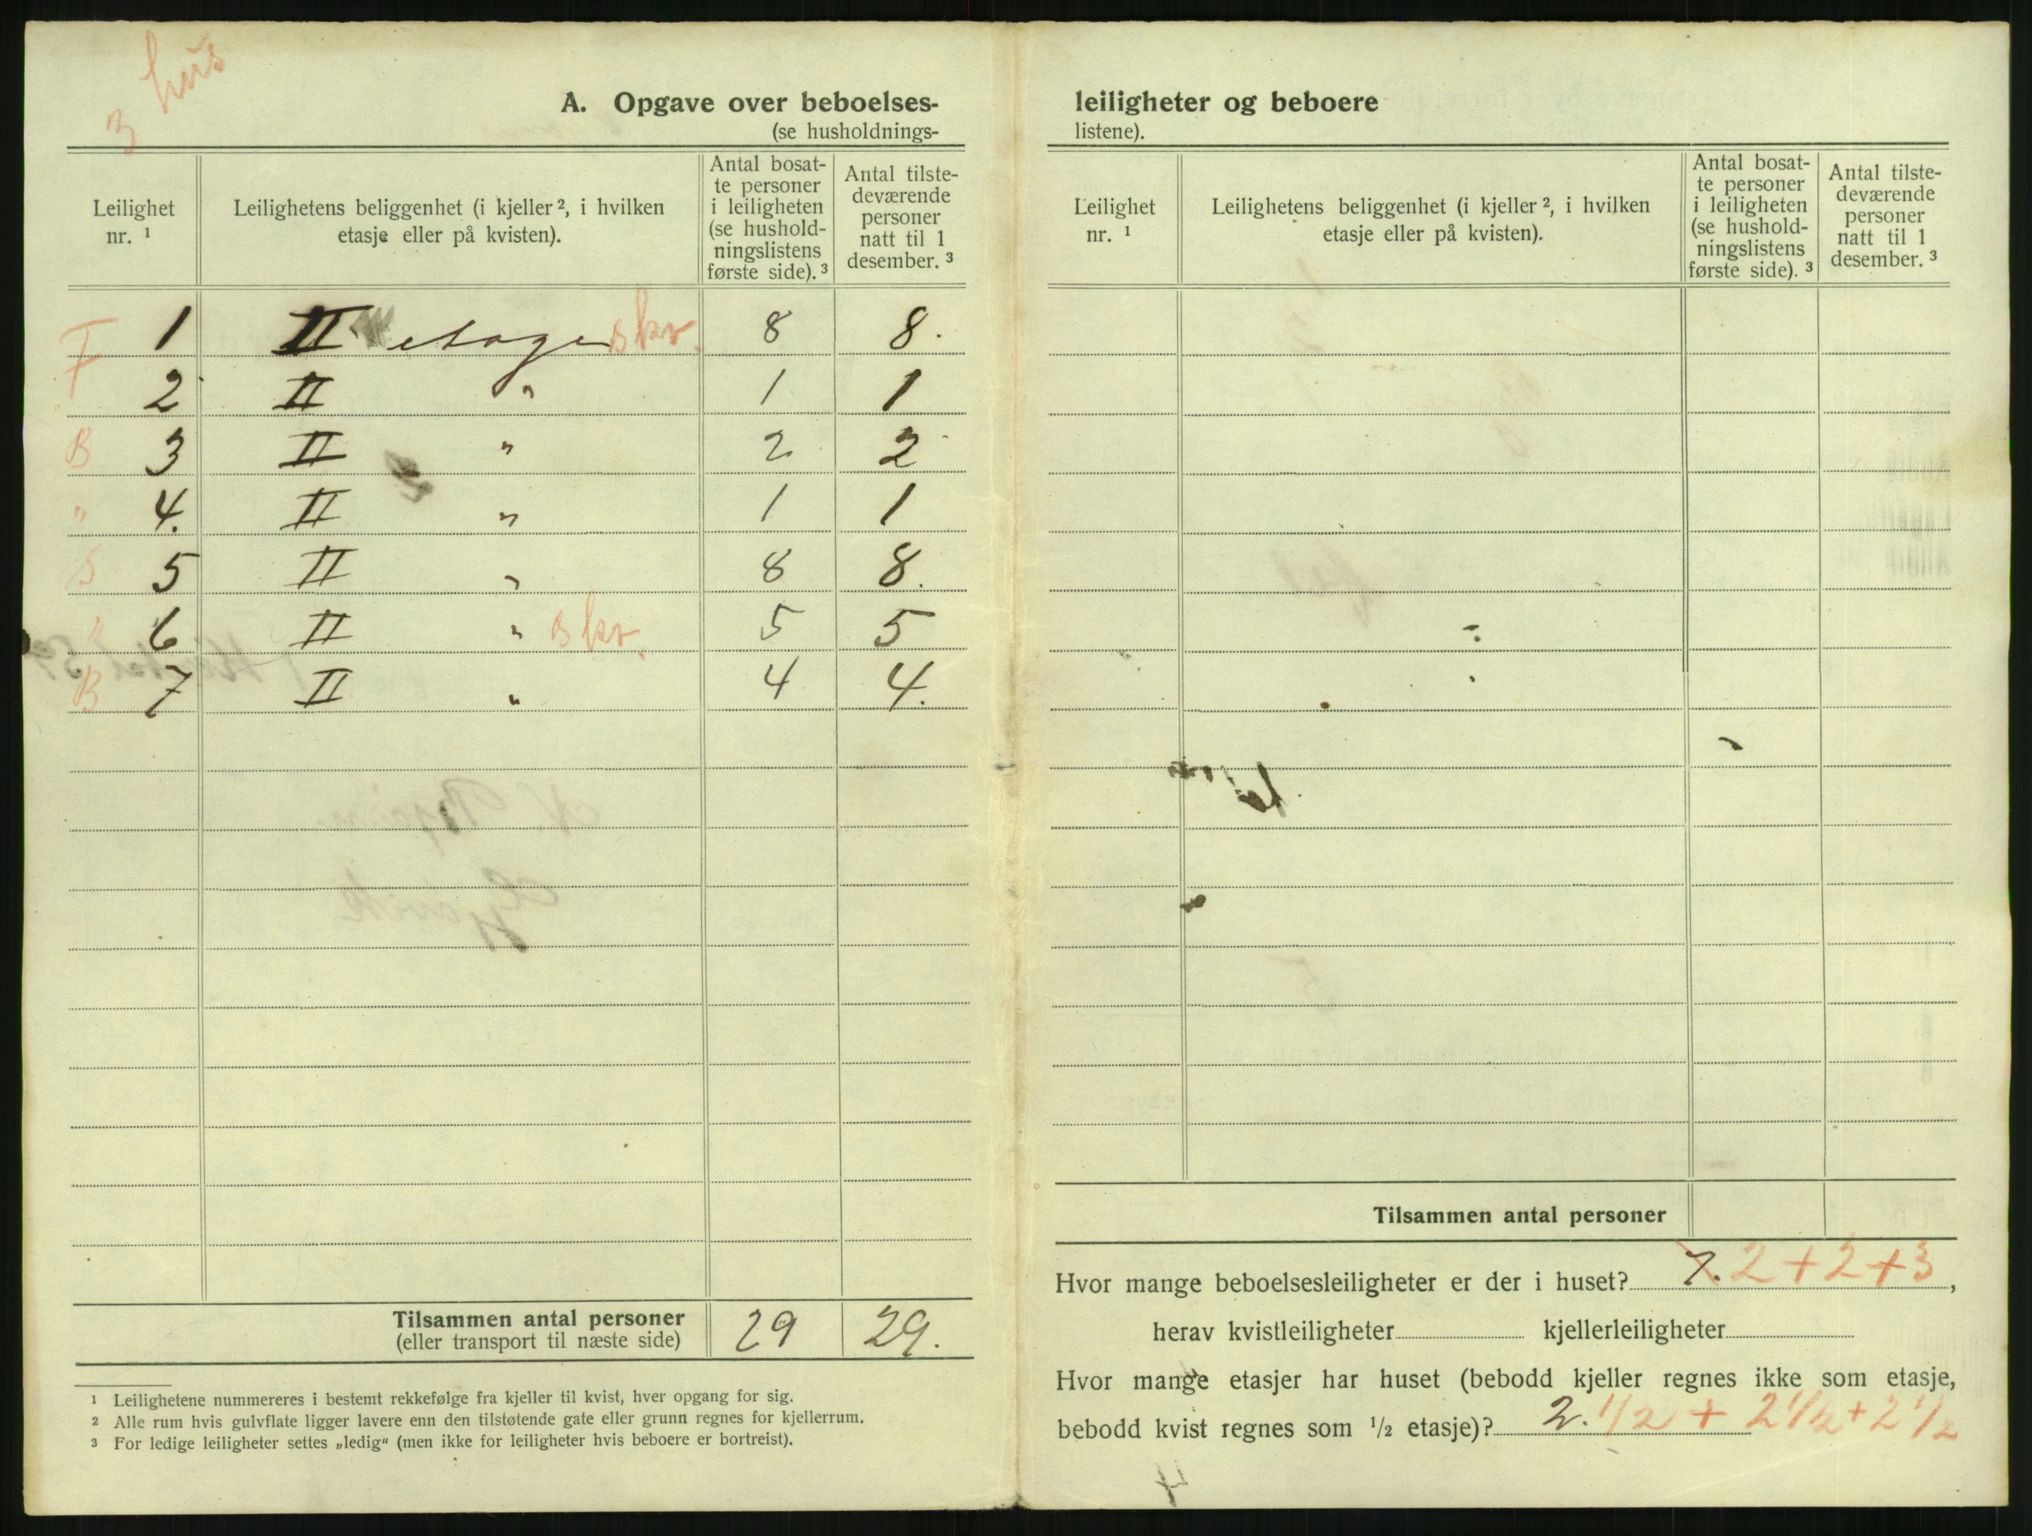 3 hus
A. Opgave over beboelses-
(se husholdnings-
Leilighet nr. 1 | Leilighetens beliggenhet (i kjeller 2, i hvilken etasje eller på kvisten). | Antal bosat- te personer i leiligheten (se hushold- ningslistens første side). 3 | Antal tilste- deværende personer natt til 1 desember. 3
F 1 II etage skr. 8 8.
2 II " 1 1
B 3 II " 2 2
" 4. II " 1 1
S 5 II " 8 8.
" 6 II " skr. 5 5
B 7 II " 4 4.
Tilsammen antal personer
(eller transport til næste side) 29 29.
1 Leilighetene nummereres i bestemt rekkefølge fra kjeller til kvist, hver opgang for sig.
2 Alle rum hvis gulvflate ligger lavere enn den tilstøtende gate eller grunn regnes for kjellerrum.
3 For ledige leiligheter settes „ledig“ (men ikke for leiligheter hvis beboere er bortreist).
leiligheter og beboere
listene).
Leilighet nr. 1 | Leilighetens beliggenhet (i kjeller 2, i hvilken etasje eller på kvisten). | Antal bosat- te personer i leiligheten (se hushold- ningslistens første side). 3 | Antal tilste- deværende personer natt til 1 desember. 3
Tilsammen antal personer
Hvor mange beboelsesleiligheter er der i huset? 7. 2 + 2 + 3,
herav kvistleiligheter kjellerleiligheter
Hvor mange etasjer har huset (bebodd kjeller regnes ikke som etasje,
bebodd kvist regnes som 1/2 etasje)? 2. 1/2 + 2 1/2 + 2 1/2